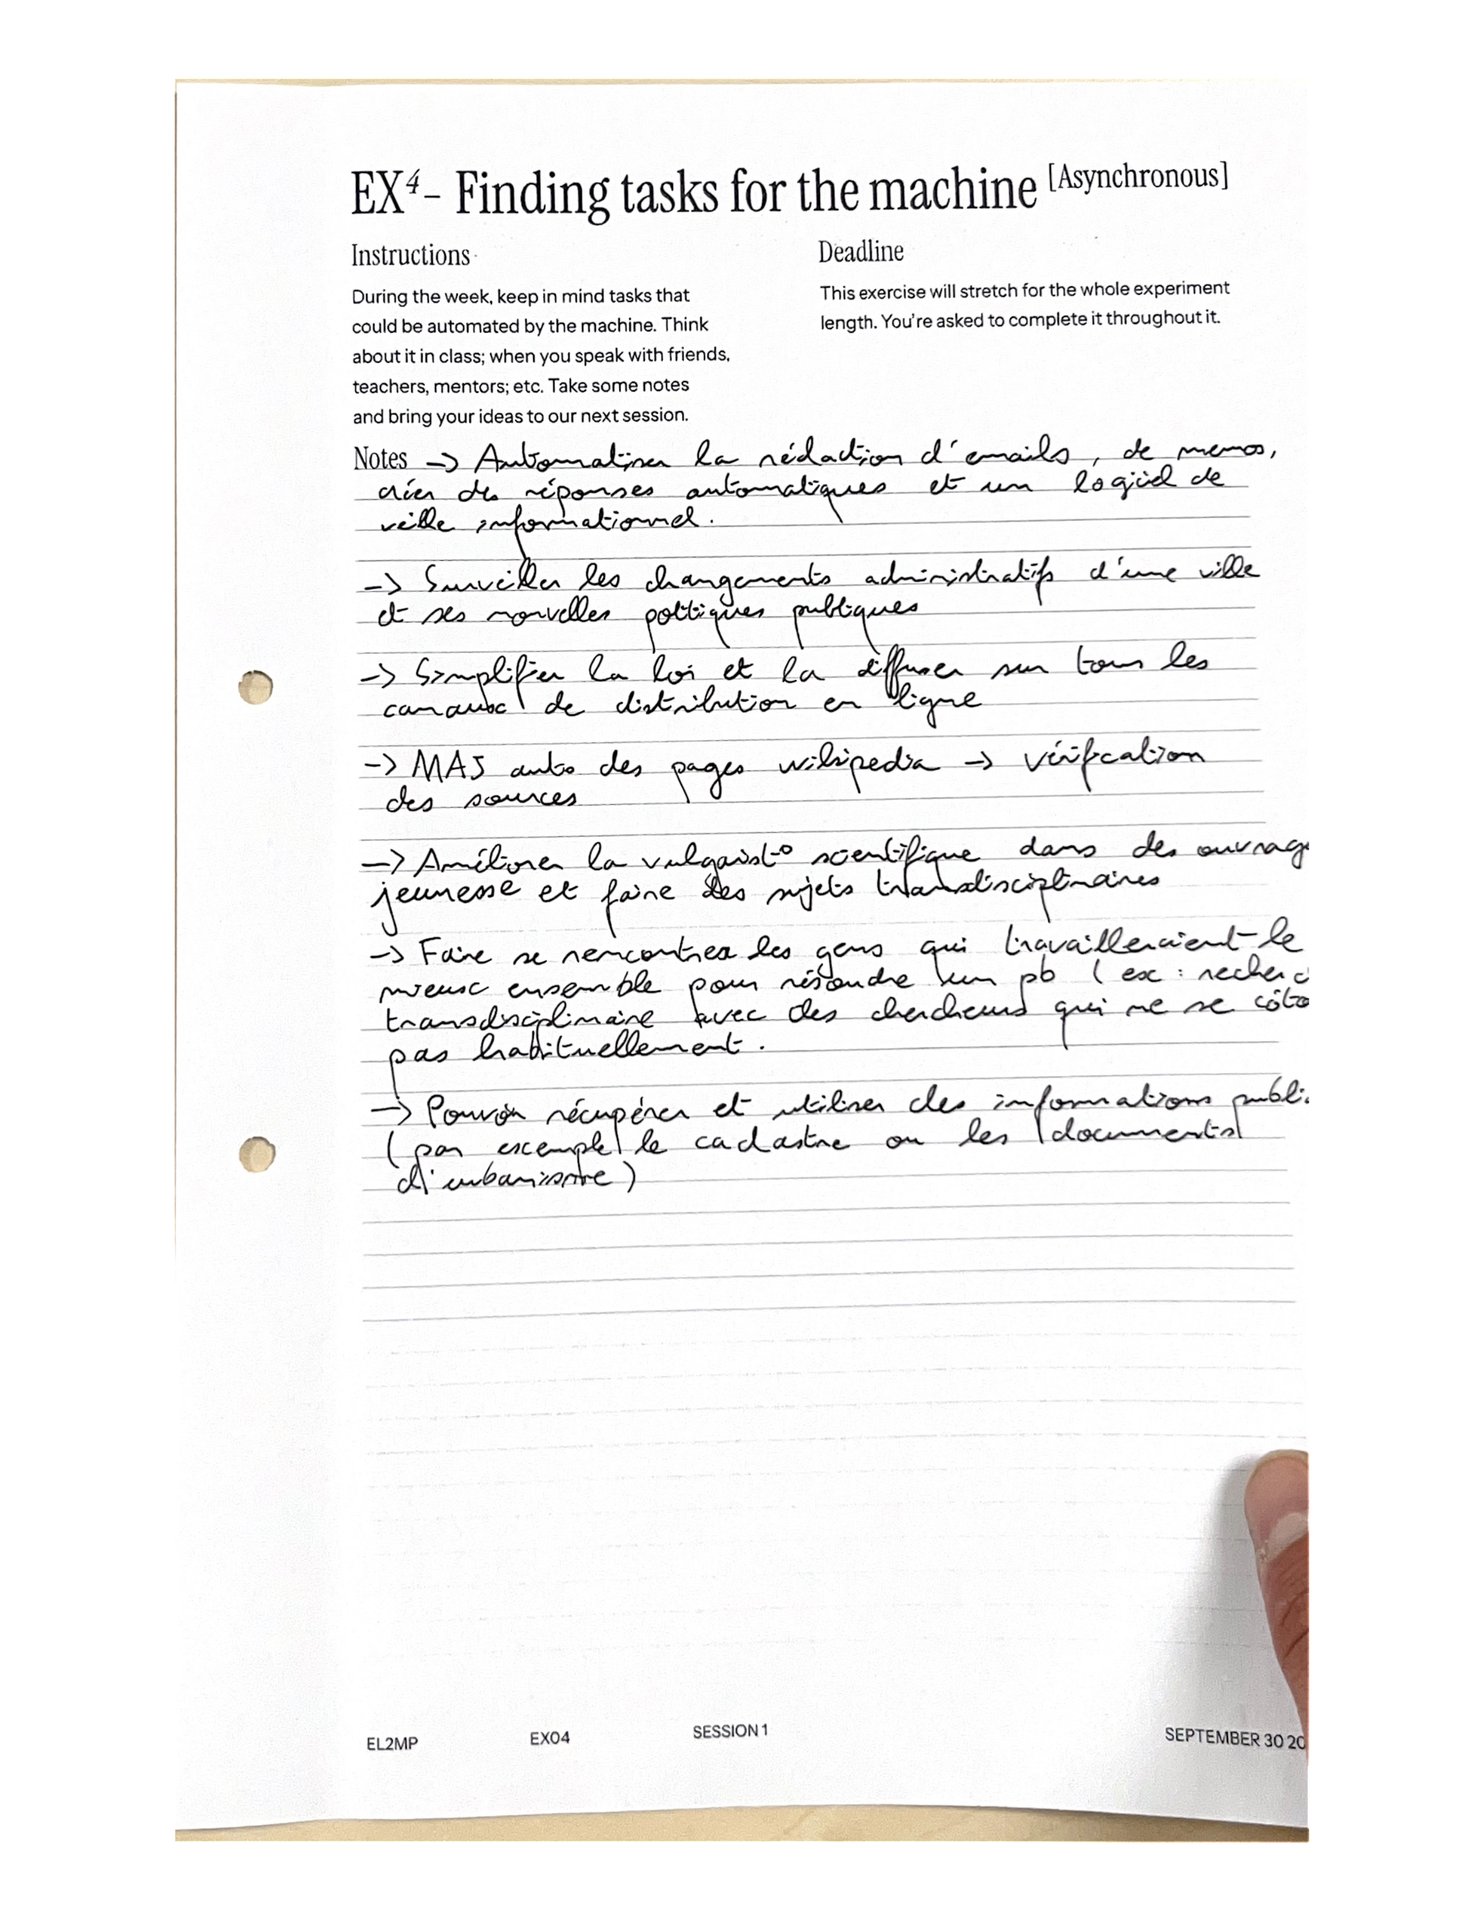 EX⁴- Finding tasks for the machine [Asynchronous]
Instructions
During the week, keep in mind tasks that
could be automated by the machine. Think
about it in class; when you speak with friends,
teachers, mentors; etc. Take some notes
and bring your ideas to our next session.
Deadline
This exercise will stretch for the whole experiment
length. You're asked to complete it throughout it.
Notes -> Automatiser la rédaction d'emails, de memos,
créer des réponses automatiques et un logiciel de
veille informationnel.
-> Surveiller les changements administratifs d'une ville
et ses nouvelles politiques publiques
-> Simplifier la loi et la diffuser sur tous les
canaux de distribution en ligne
-> MAJ auto des pages wikipedia -> vérification
des sources
-> Améliorer la vulgarist° scientifique dans des ouvrage
jeunesse et faire des sujets transdisciplinaires
-> Faire se rencontrer les gens qui travailleraient le
mieux ensemble pour résoudre un pb (ex : recherc
transdisciplinaire avec des chercheurs qui ne se côto
pas habituellement.
-> Pouvoir récupérer et utiliser des informations publi
(par exemple le cadastre ou les documents
d'urbanisme)
EL2MP
EX04
SESSION 1
SEPTEMBER 30 20